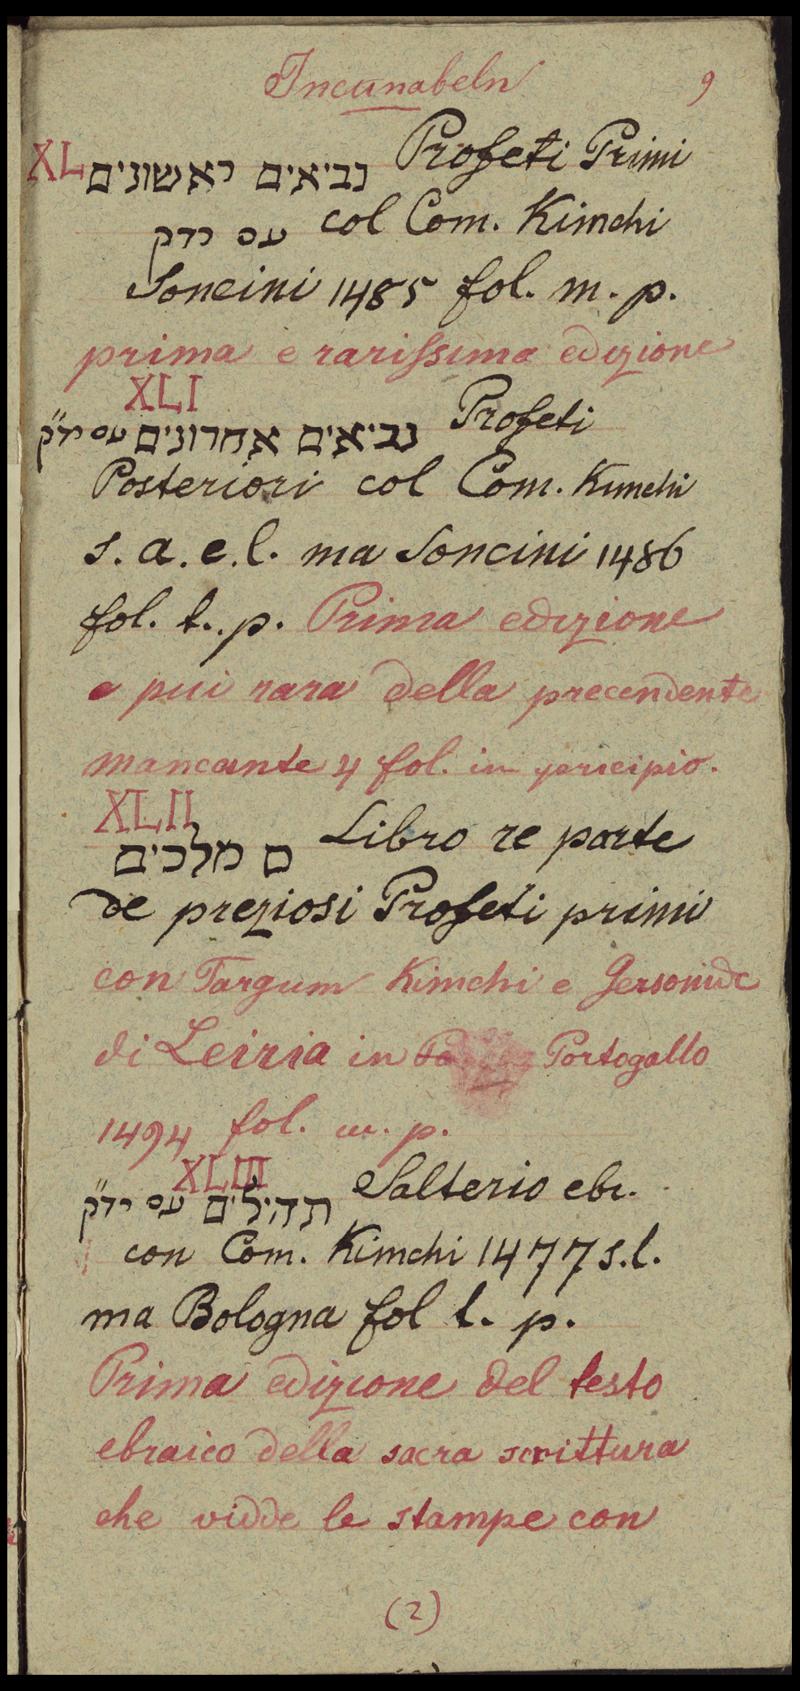 Incunabeln 9
XL נביאים ראשונים Profeti Primi
עם רדק col Com. Kimchi
Soncini 1485 fol. m. p.
prima e rarissima edizione
XLI
נביאים אחרונים עם רד"ק Profeti
Posteriori col Com. Kimchi
s. a. e. l. ma Soncini 1486
fol. t. p. Prima edizione
e piui rara della precendente
mancante 4 fol. in principio.
XLII
ס מלכים Libro re parte
de preziosi Profeti primi
con Targum Kimchi e Gersonide
di Leiria in Portogallo
1494 fol. m. p.
XLIII
תהילים עם רד"ק Salterio ebr.
con Com. Kimchi 1477 s. l.
ma Bologna fol t. p.
Prima edizione del testo
ebraico della sacra scrittura
che vidde le stampe con
(2)